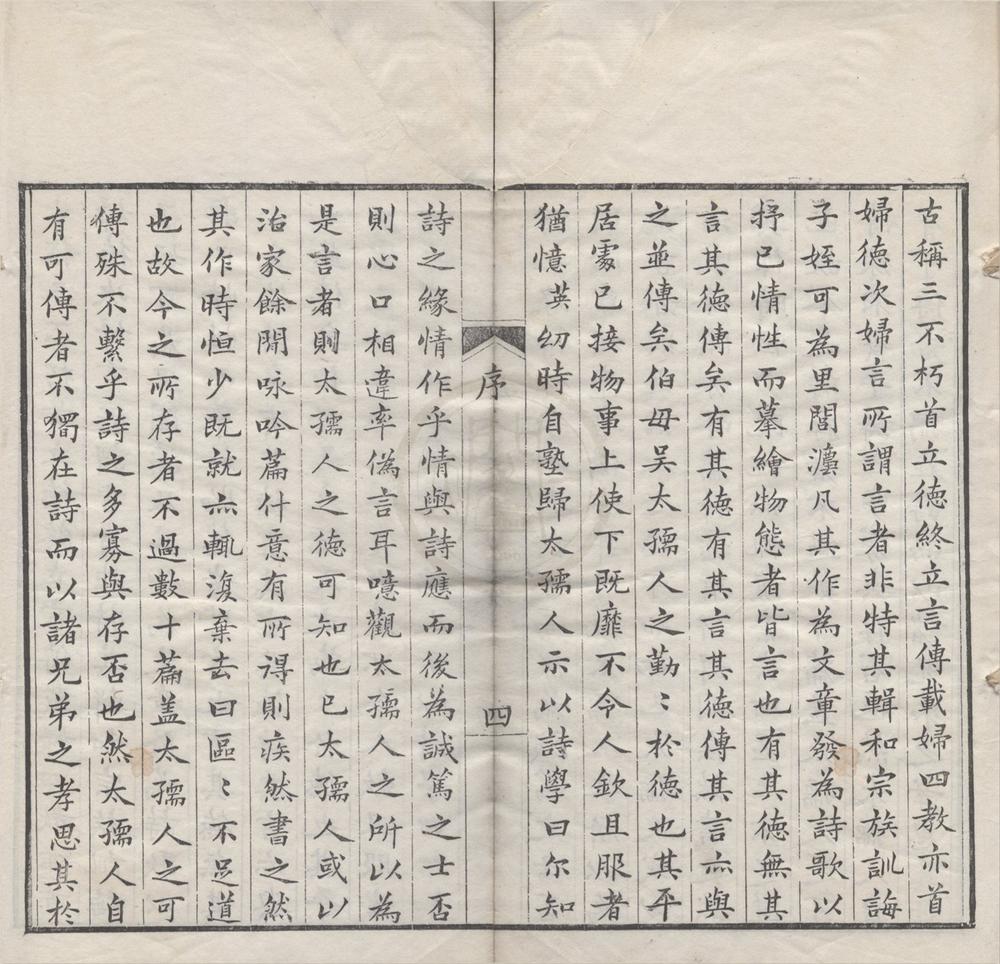 古稱三不朽首立徳終立言傳載婦四教亦首
婦徳次婦言所謂言者非特其輯和宗族訓誨
子姪可為里閭灋凡其作為文章發為詩歌以
抒已情性而摹繪物態者皆言也有其徳無其
言其徳傳矣有其徳有其言其徳傳其言亦與
之並傳矣伯母吳太孺人之勤〻於徳也其平
居處已接物事上使下既靡不令人欽且服者
猶憶英幼時自塾歸太孺人示以詩學曰尔知
序
四
詩之緣情作乎情與詩應而後為誠篤之士否
則心口相違率偽言耳噫觀太孺人之所以為
是言者則太孺人之徳可知也已太孺人或以
治家餘閒咏吟篇什意有所得則疾然書之然
其作時恒少既就亦輒復棄去曰區〻不足道
也故今之所存者不過數十篇盖太孺人之可
傳殊不繫乎詩之多寡與存否也然太孺人自
有可傳者不獨在詩而以諸兄弟之孝思其於